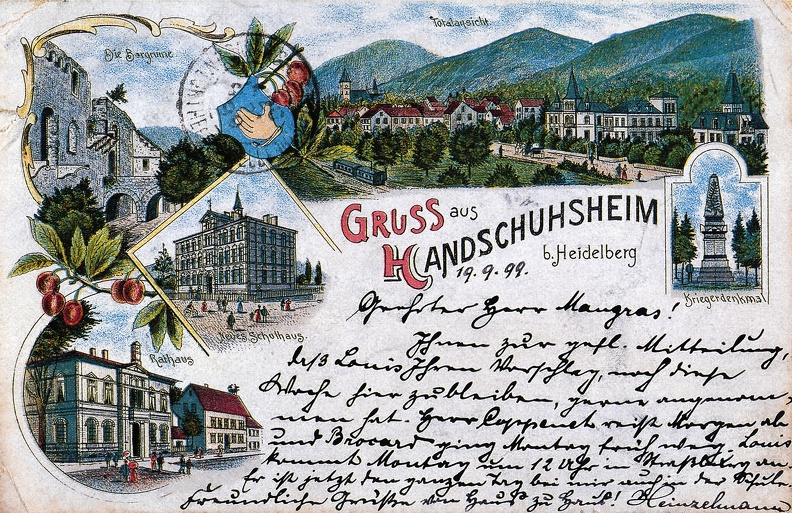 Totalansicht.
Die Burgruine
GRUSS aus
HANDSCHUHSHEIM
b. Heidelberg
19. 9. 99.
Kriegerdenkmal
Neues Schulhaus.
Rathaus
Geehrter Herr Mangras!
Ihnen zur gefl. Mitteilung,
daß Louis Ihren Vorschlag, noch diese
Woche hier zu bleiben, gerne angenom-
men hat. Herr Coppenet reist Morgen ab
und Brocard ging Montag früh weg. Louis
kommt Montag um 12 Uhr in Straßburg an.
Er ist jetzt den ganzen Tag bei mir auch in der Schule.
Freundliche Grüße von Haus zu Haus! Heinzelmann